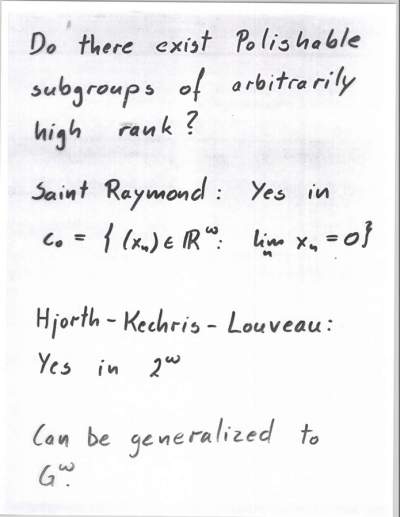 Do there exist Polishable
subgroups of arbitrarily
high rank?
Saint Raymond: Yes in
c₀ = { (xₙ) ∈ ℝ^ω: lim_n xₙ = 0}
Hjorth-Kechris-Louveau:
Yes in 2^ω
Can be generalized to
G^ω.